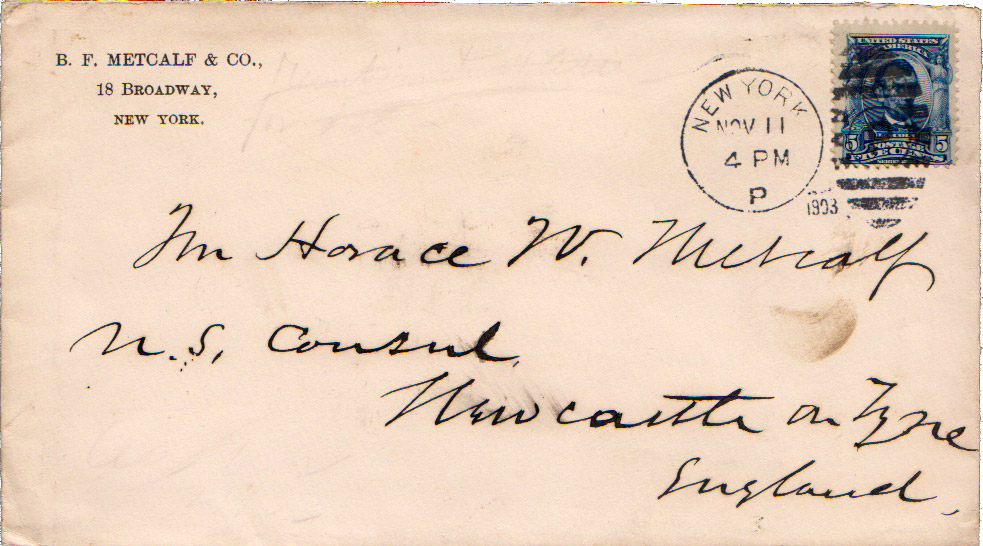 B. F. METCALF & CO.,
18 BROADWAY,
NEW YORK.
NEW YORK
NOV 11
4 PM
P
1903
UNITED STATES
AMERICA
5 5
POSTAGE
FIVE CENTS
Mr Horace W. Metcalf
U.S. Consul
Newcastle on Tyne
England.